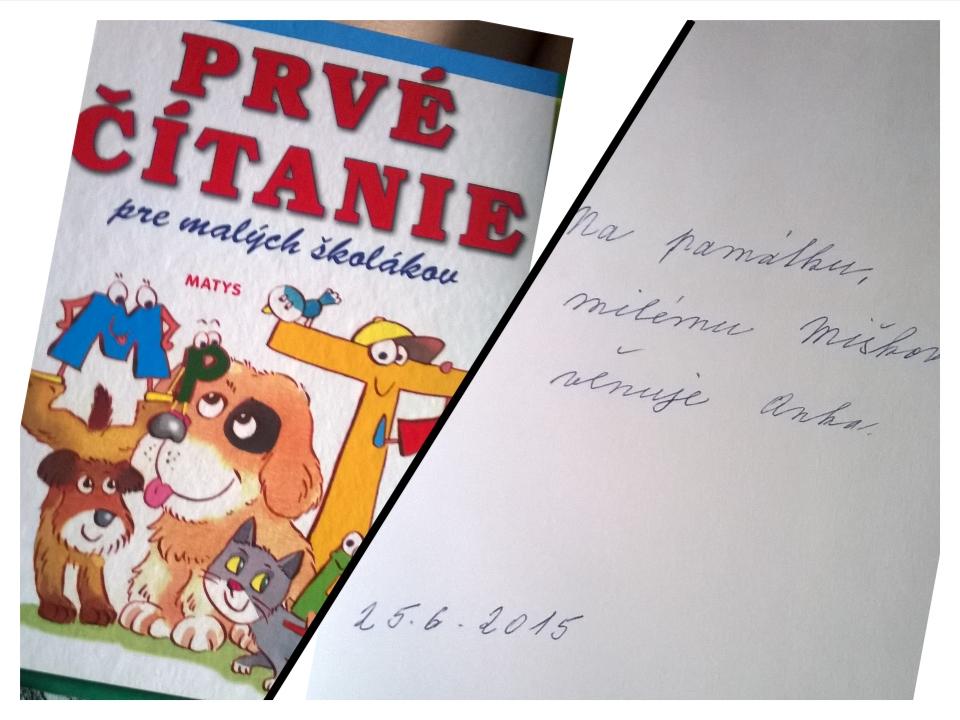 PRVÉ
ČÍTANIE
pre malých školákov
MATYS
M P T
Na památku,
milému Miškov
věnuje Anka.
25.6.2015